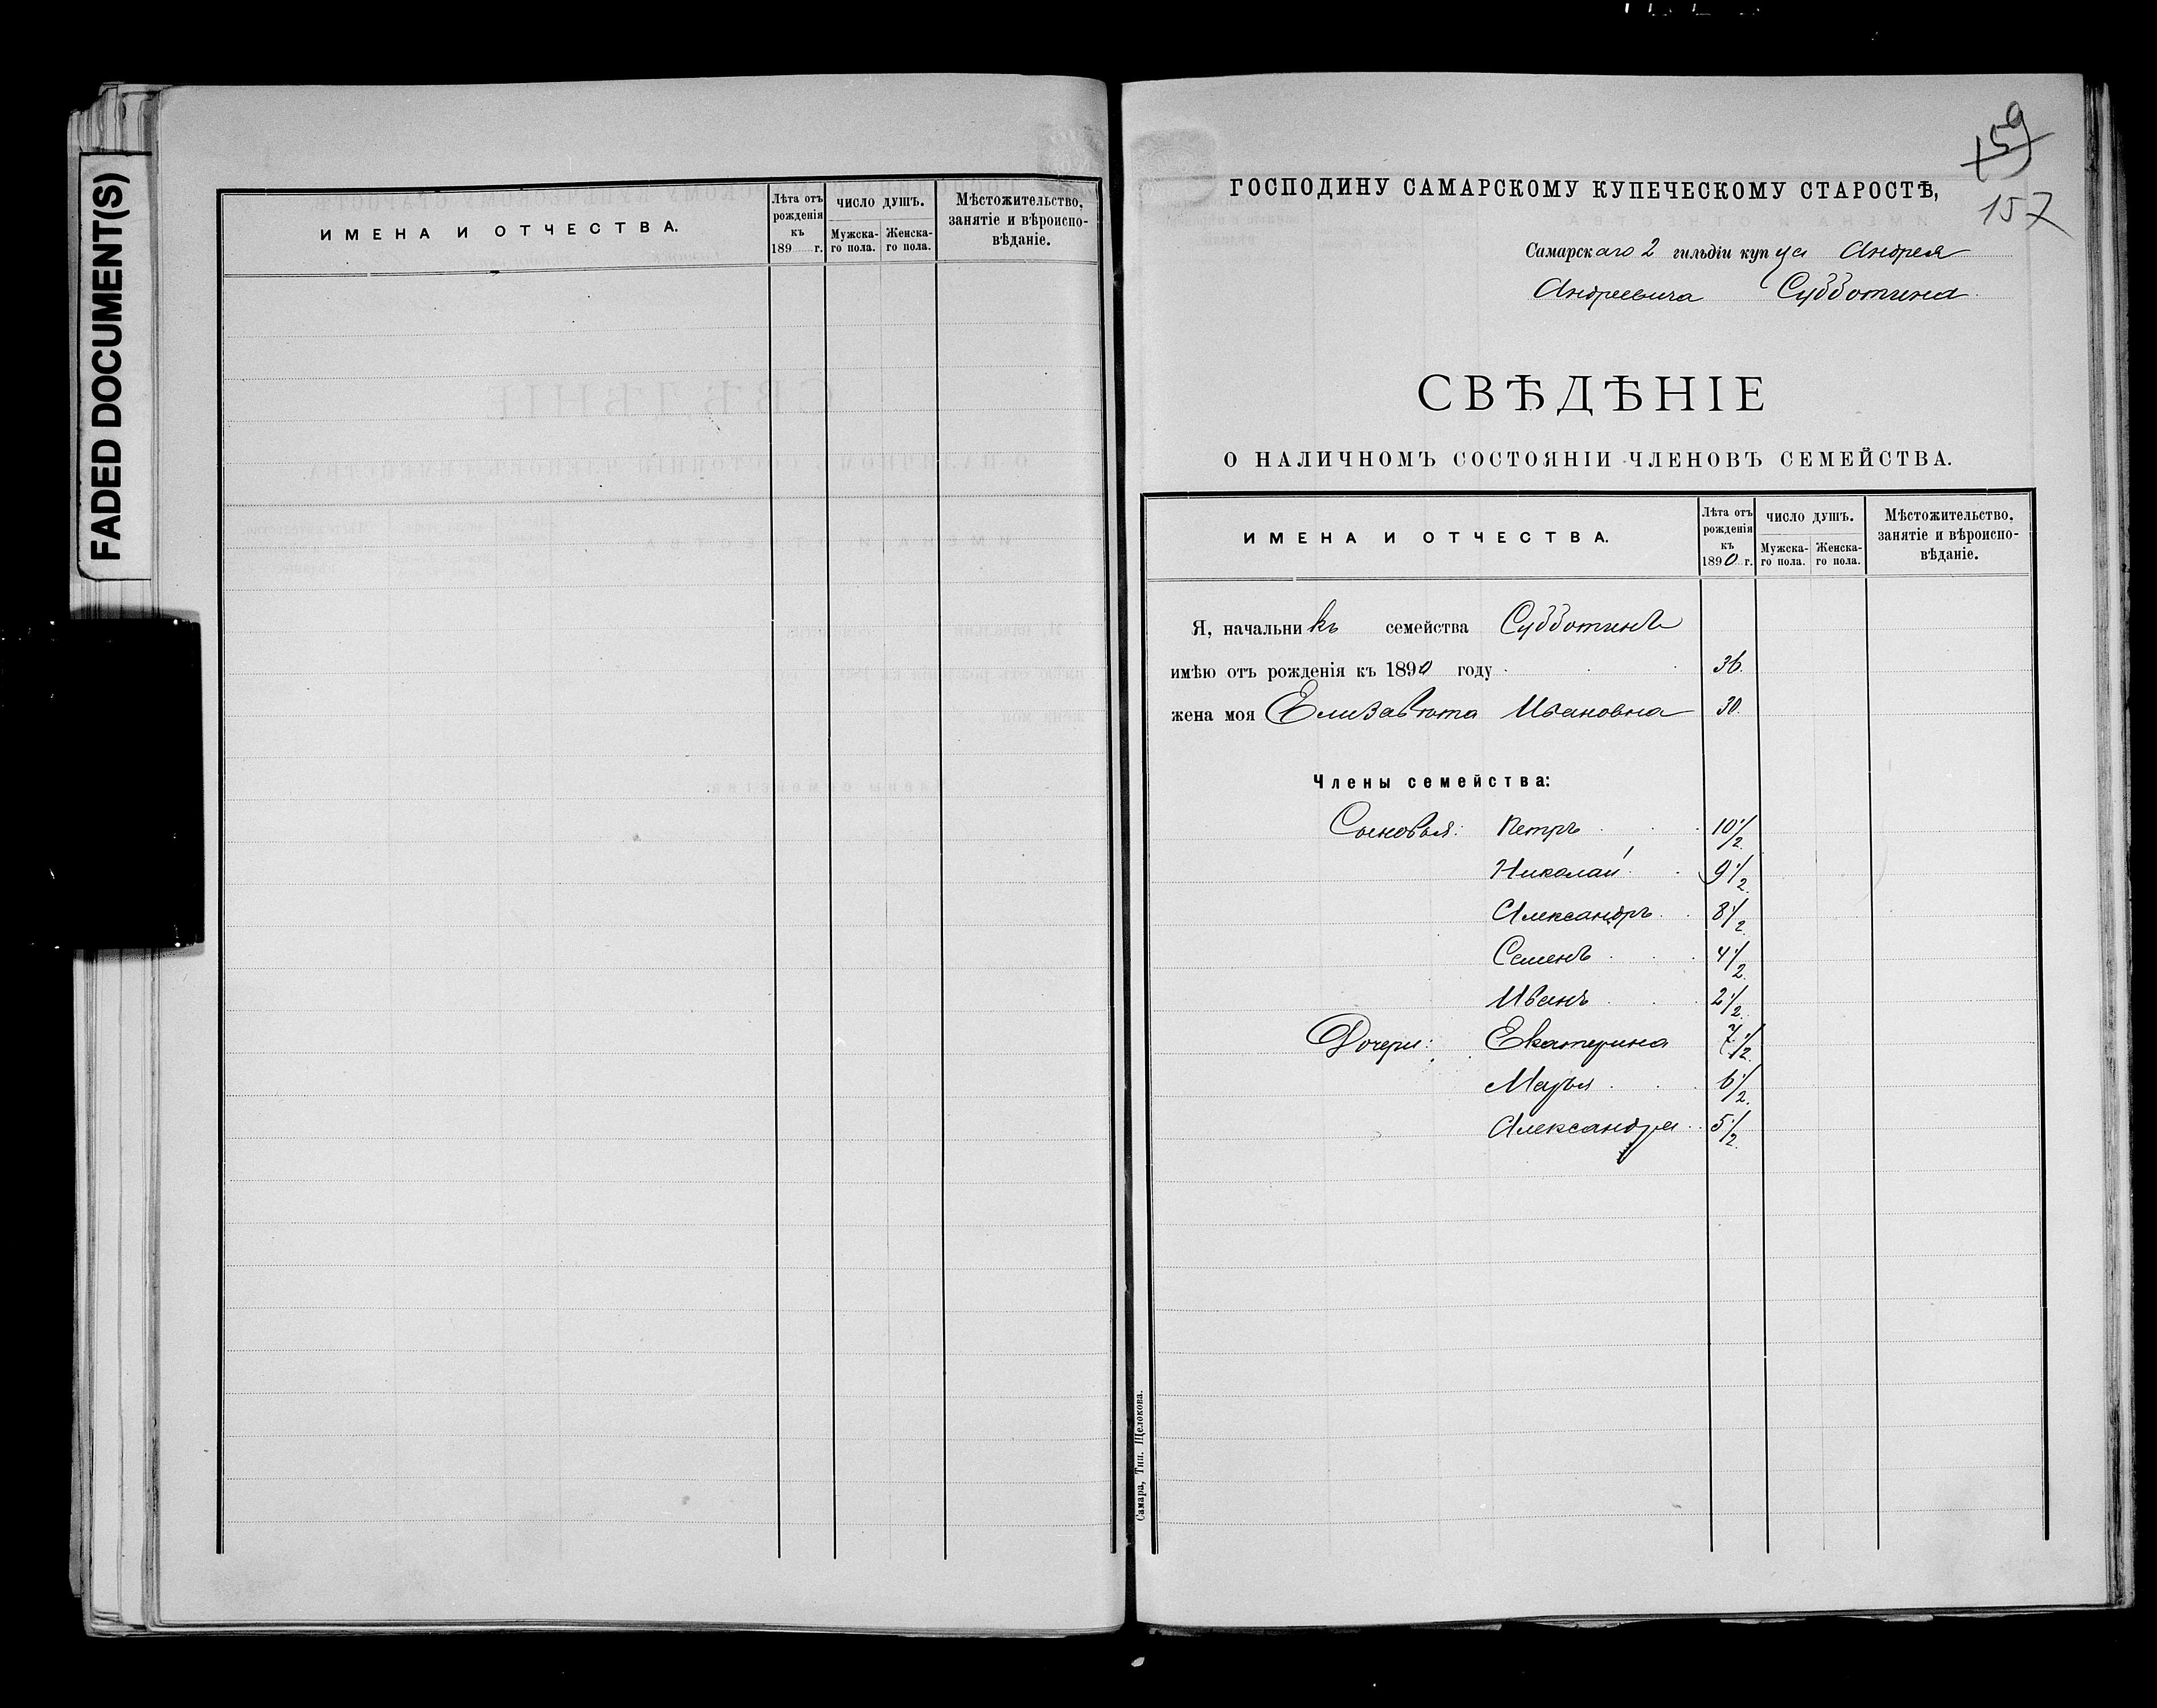 FADED DOCUMENT(S)
ИМЕНА И ОТЧЕСТВА.
Лѣта отъ рожденія къ 189 г.
ЧИСЛО ДУШЪ.
Мужска-го пола.
Женска-го пола.
Мѣстожительство, занятіе и вѣроиспо-вѣданіе.
159
157
ГОСПОДИНУ САМАРСКОМУ КУПЕЧЕСКОМУ СТАРОСТѢ,
Самарскаго 2 гильдіи купца Андрея
Андреевича Субботина.
СВѢДѢНІЕ
О НАЛИЧНОМЪ СОСТОЯНІИ ЧЛЕНОВЪ СЕМЕЙСТВА.
ИМЕНА И ОТЧЕСТВА.
Лѣта отъ рожденія къ 1890 г.
ЧИСЛО ДУШЪ.
Мужска-го пола.
Женска-го пола.
Мѣстожительство, занятіе и вѣроиспо-вѣданіе.
Я, начальникъ семейства Субботинъ
имѣю отъ рожденія къ 1890 году 36.
жена моя Елизавѣта Ивановна 30.
Члены семейства:
Сыновья: Петръ 10 1/2
Николай 9 1/2
Александръ 8 1/2
Семенъ 4 1/2
Иванъ 2 1/2
Дочери: Екатерина 7 1/2
Марья 6 1/2
Александра 5 1/2
Самара, Тип. Щелокова.